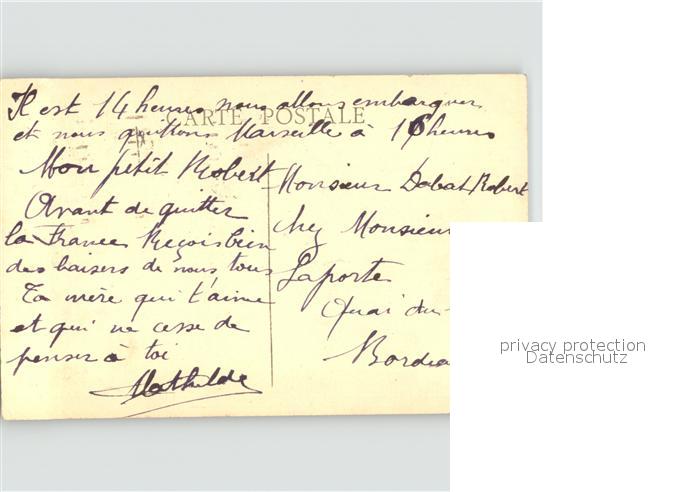 Il est 14 heures nous allons embarquer
CARTE POSTALE
et nous quittons Marseille à 16 heures
Mon petit Robert
Avant de quitter
la France Reçois bien
des baisers de nous tous
Ta mère qui t'aime
et qui ne cesse de
penser à toi
Mathilde
Monsieur Dabat Robert
chez Monsieur
Laporte
Quai du
Bordea
privacy protection
Datenschutz